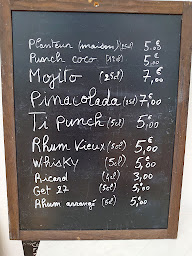 Planteur (maison) (25cl) 5,00€
Punch coco (12cl) 5,00€
Mojito (25cl) 7,00€
Pinacolada (25cl) 7,00€
Ti Punch (5cl) 5,00€
Rhum Vieux (5cl) 5,00€
Whisky (5cl) 5,00€
Ricard (2cl) 3,00
Get 27 (5cl) 5,00€
Rhum arrangé (5cl) 5,00€